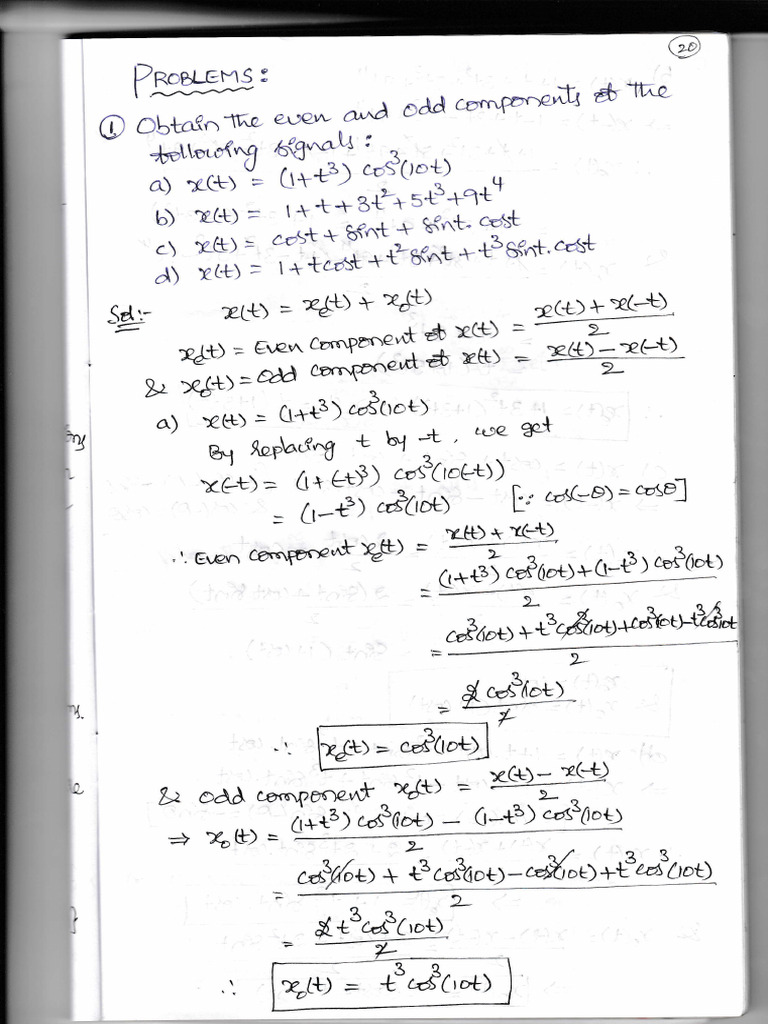 20
PROBLEMS:
① Obtain the even and odd components of the
following signals:
a) x(t) = (1+t³) cos³(10t)
b) x(t) = 1+t+3t²+5t³+9t⁴
c) x(t) = cost + sint + sint. cost
d) x(t) = 1+tcost+t²sint+t³sint.cost
Sol:- x(t) = xₑ(t) + x₀(t)
xₑ(t) = Even component of x(t) = (x(t) + x(-t))/2
& x₀(t) = odd component of x(t) = (x(t) - x(-t))/2
a) x(t) = (1+t³) cos³(10t)
By replacing t by -t, we get
x(-t) = (1+(-t)³) cos³(10(-t))
= (1-t³) cos³(10t) [∵ cos(-θ) = cosθ]
∴ Even component xₑ(t) = (x(t) + x(-t))/2
= ((1+t³) cos³(10t) + (1-t³) cos³(10t))/2
= (cos³(10t) + t³cos³(10t) + cos³(10t) - t³cos³10t)/2
= 2 cos³(10t)/2
∴ xₑ(t) = cos³(10t)
& odd component x₀(t) = (x(t) - x(-t))/2
⇒ x₀(t) = ((1+t³) cos³(10t) - (1-t³) cos³(10t))/2
= (cos³(10t) + t³cos³(10t) - cos³(10t) + t³cos³(10t))/2
= 2t³cos³(10t)/2
∴ x₀(t) = t³cos³(10t)